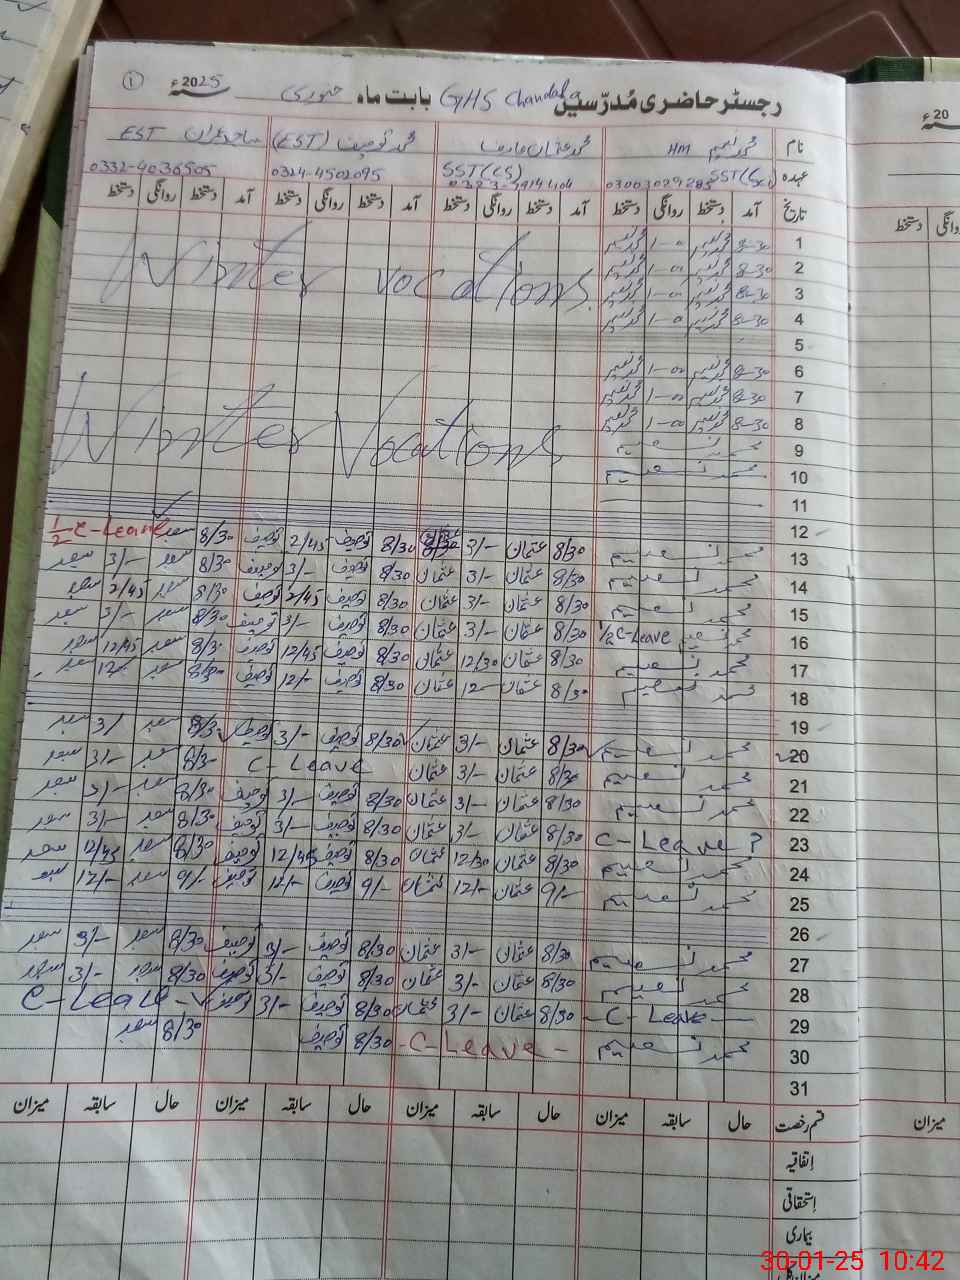 رجسٹر حاضری مُدرّسین GHS Chandala بابت ماہ جنوری 2025ء ①
نام محمد نعیم HM محمد عثمان عارف محمد توصیف (EST) EST
عہدہ SST(Sci) SST(CS)
0324-4502095 0332-4036505
تاریخ آمد دستخط روانگی دستخط آمد دستخط روانگی دستخط آمد دستخط روانگی دستخط آمد دستخط روانگی دستخط
1 8-30 محمد نعیم 1-00 محمد نعیم
2 8-30 محمد نعیم 1-00 محمد نعیم
Winter vocations
3 8-30 محمد نعیم 1-00 محمد نعیم
4 8-30 محمد نعیم 1-00 محمد نعیم
5
6 8-30 محمد نعیم 1-00 محمد نعیم
7 8-30 محمد نعیم 1-00 محمد نعیم
8 8-30 محمد نعیم 1-00 محمد نعیم
Winter Vocations
9 محمد نعیم
10 محمد نعیم
11
12
13 محمد نعیم 8/30 عثمان 3/- 8/30 توصیف 2/45 توصیف 8/30 سعد 1/2 C-Leave
14 محمد نعیم 8/30 عثمان 3/- عثمان 8/30 توصیف 3/- توصیف 8/30 سعد 3/- سعد
15 محمد نعیم 8/30 عثمان 3/- عثمان 8/30 توصیف 2/45 توصیف 8/30 سعد 2/45 سعد
16 محمد نعیم 1/2 C-Leave 8/30 عثمان 3/- عثمان 8/30 توصیف 3/- توصیف 8/30 سعد 3/- سعد
17 محمد نعیم 8/30 عثمان 12/30 عثمان 8/30 توصیف 12/45 توصیف 8/30 سعد 12/45 سعد
18 محمد نعیم 8/30 عثمان 12 عثمان 8/30 توصیف 12/- توصیف 8/30 سعد 12/- سعد
19
20 محمد نعیم 8/30 عثمان 3/- عثمان 8/30 توصیف 3/- توصیف 8/30 سعد 3/ سعد
21 محمد نعیم 8/30 عثمان 3/- عثمان C-Leave 8/30 سعد 3/- سعد
22 محمد نعیم 8/30 عثمان 3/- عثمان 8/30 توصیف 3/- توصیف 8/30 سعد 3/- سعد
23 C-Leave ? 8/30 عثمان 3/- عثمان 8/30 توصیف 3/- توصیف 8/30 سعد 3/- سعد
24 محمد نعیم 8/30 عثمان 12/30 عثمان 8/30 توصیف 12/45 توصیف 8/30 سعد 12/45 سعد
25 محمد نعیم 9/- عثمان 12/- عثمان 9/- توصیف 12/- توصیف 9/- سعد 12/- سعد
26
27 محمد نعیم 8/30 عثمان 3/- عثمان 8/30 توصیف 3/- توصیف 8/30 سعد 3/- سعد
28 محمد نعیم 8/30 عثمان 3/- عثمان 8/30 توصیف 3/- توصیف 8/30 سعد 3/- سعد
29 - C - Leave - 8/30 عثمان 3/- عثمان 8/30 توصیف 3/- توصیف C-Leave -
30 محمد نعیم - C-Leave - 8/30 توصیف 8/30 سعد
31
قسم رخصت حال سابقہ میزان حال سابقہ میزان حال سابقہ میزان حال سابقہ میزان
اتفاقیہ
استحقاقی
بیماری
20ء
روانگی دستخط
میزان
30-01-25 10:42